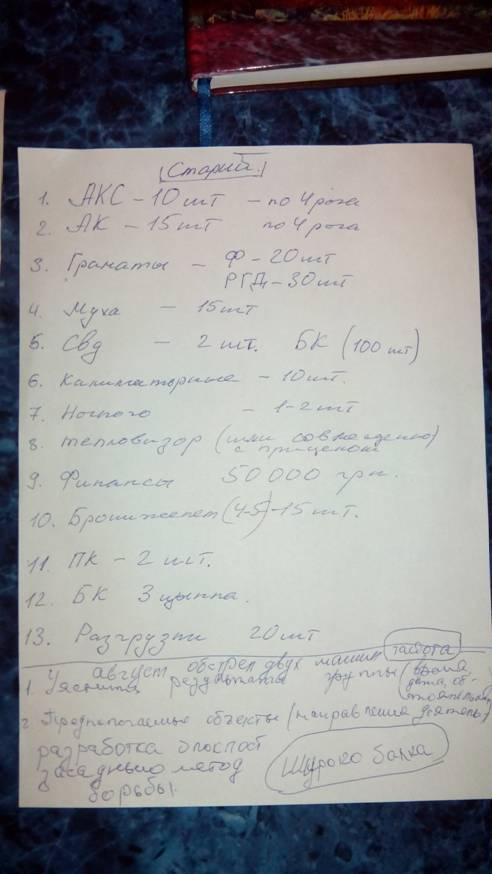 Старий.
1. АКС - 10 шт - по 4 рога
2. АК - 15 шт по 4 рога
3. Гранаты - Ф - 20 шт
РГД - 30 шт
4. Муха - 15 шт
5. Свд - 2 шт. БК (100 шт)
6. Калиматорные - 10 шт.
7. Ночного - 1-2 шт
8. тепловизор (или совмещенно)
с прицелом
9. Финансы 50 000 грн.
10. Бронижелет (4-5) - 15 шт.
11. ПК - 2 шт.
12. БК 3 цынка.
13. Разгрузки 20 шт
август обстрел двух машин
1. Уяснить результаты группы (время
дата, об
2. Предполагаемые объекты (направление деятель)
разработка
засадный метод
борьбы.
Широко балка